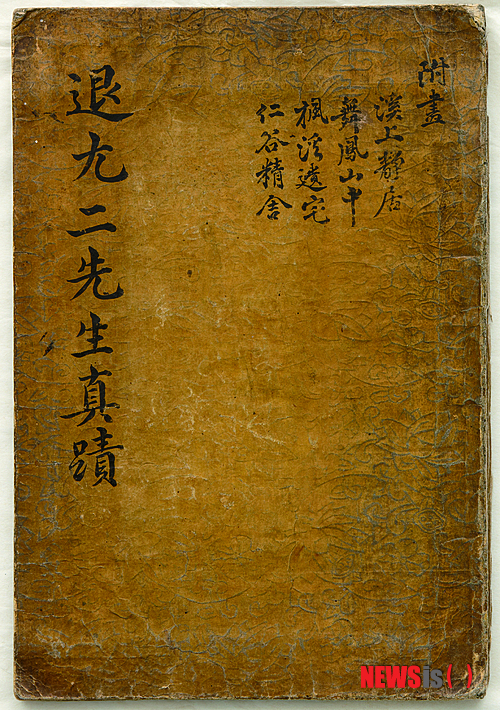 附畫
溪上靜居
舞鳳山中
楓溪遺宅
仁谷精舍
退尤二先生真蹟
NEWSis( )